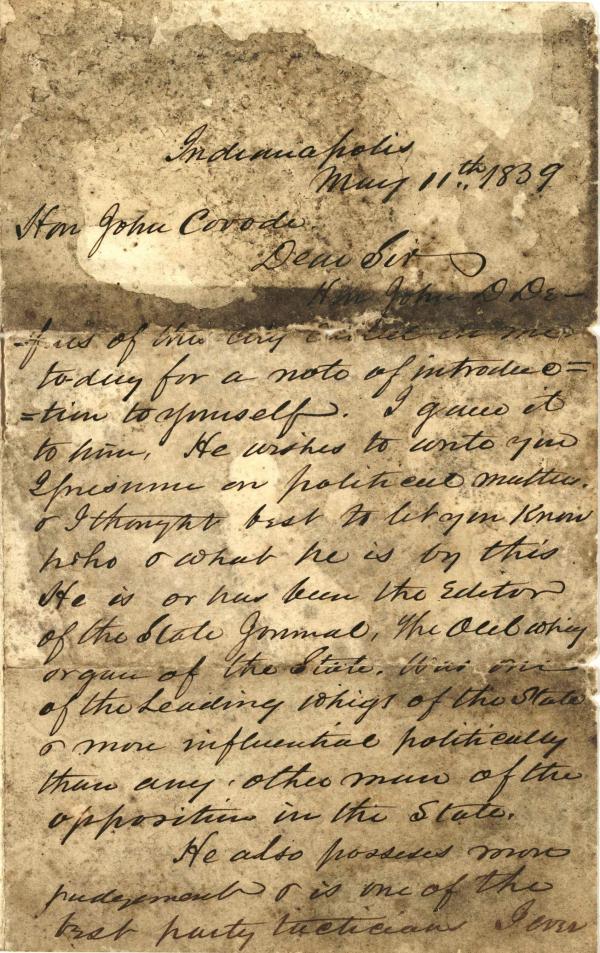 Indianapolis
May 11th, 1839
Hon John Covode.
Dear Sir
Hon John D De-
-frees of this city called on me
today for a note of introduc=
=tion to yourself. I gave it
to him, He wishes to write you
I presume on political matters.
& I thought best to let you Know
who & what he is by this
He is or has been the Editor
of the State Journal, The Old whig
organ of the State. Was one
of the Leading Whigs of the State
& more influential politically
than any other man of the
opposition in the State.
He also posseses more
judgement & is one of the
best party tacticians I ever